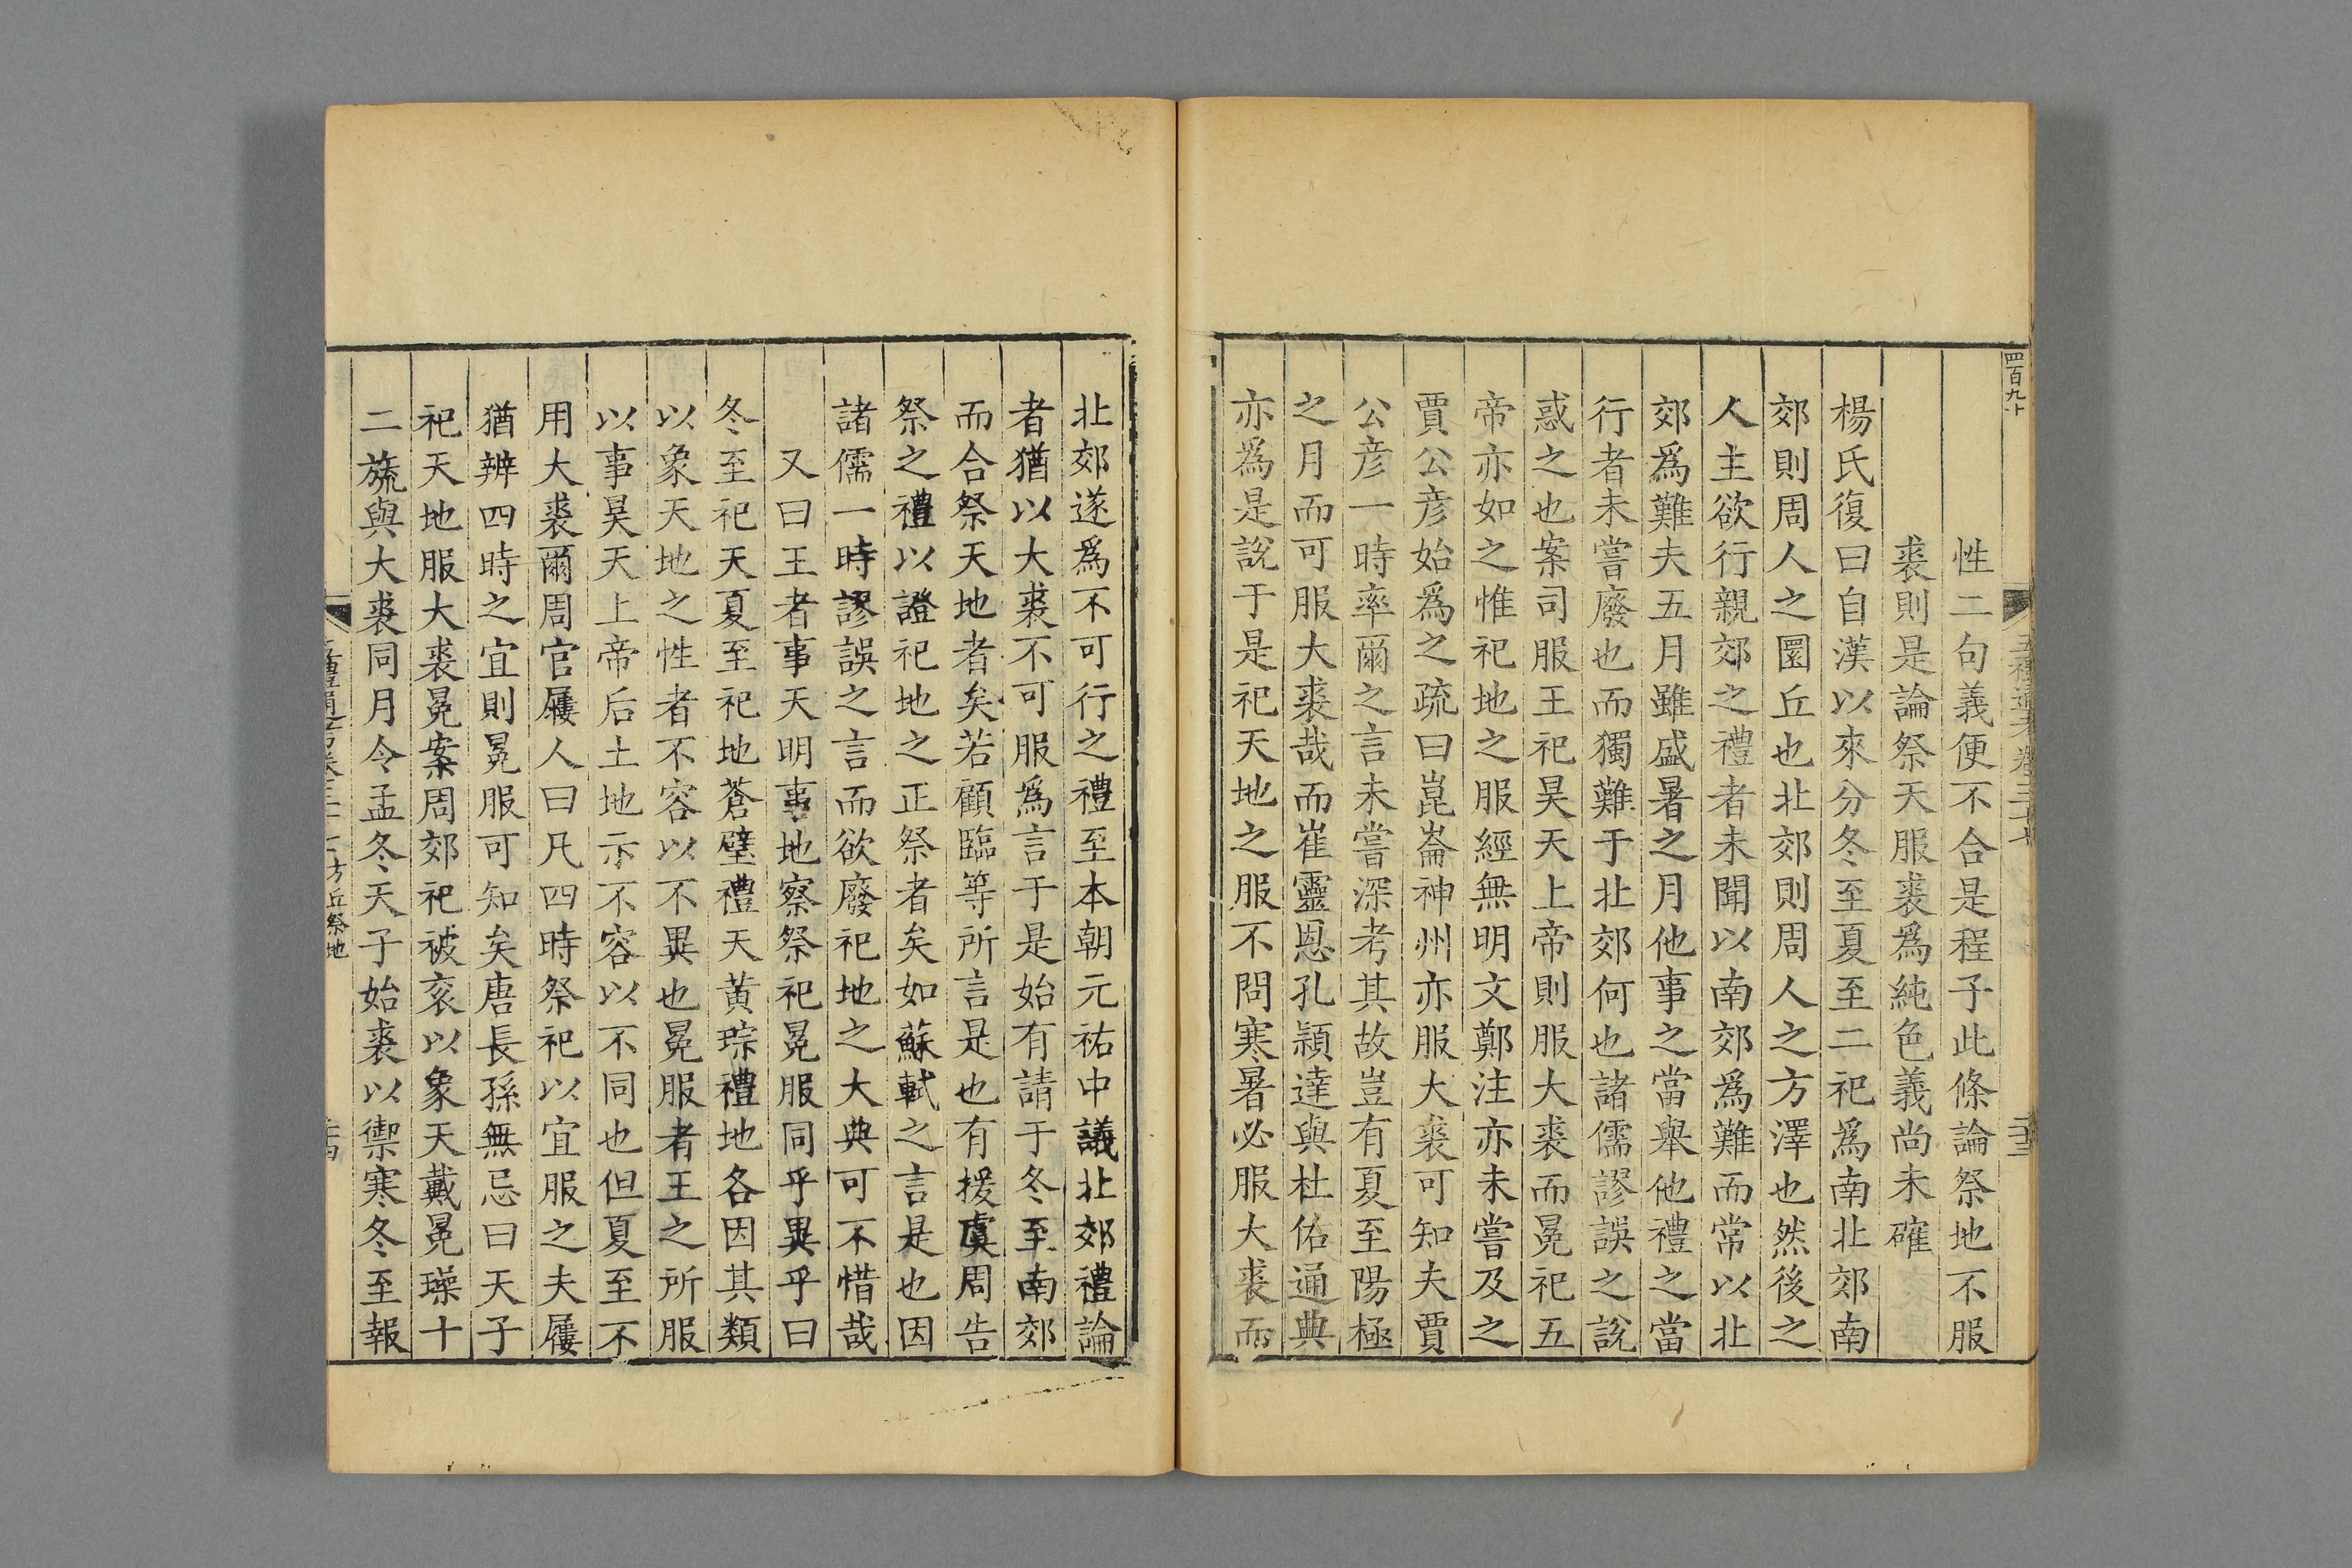 四百九十
性二句義便不合是程子此條論祭地不服
裘則是論祭天服裘爲純色義尚未確
楊氏復曰自漢以來分冬至夏至二祀爲南北郊南
郊則周人之圜丘也北郊則周人之方澤也然後之
人主欲行親郊之禮者未聞以南郊爲難而常以北
郊爲難夫五月雖盛暑之月他事之當舉他禮之當
行者未嘗廢也而獨難于北郊何也諸儒謬誤之說
惑之也案司服王祀昊天上帝則服大裘而冕祀五
帝亦如之惟祀地之服經無明文鄭注亦未嘗及之
賈公彦始爲之疏曰崑崙神州亦服大裘可知夫賈
公彦一時率爾之言未嘗深考其故豈有夏至陽極
之月而可服大裘哉而崔靈恩孔頴達與杜佑通典
亦爲是說于是祀天地之服不問寒暑必服大裘而
北郊遂爲不可行之禮至本朝元祐中議北郊禮論
者猶以大裘不可服爲言于是始有請于冬至南郊
而合祭天地者矣若顧臨等所言是也有援虞周告
祭之禮以證祀地之正祭者矣如蘇軾之言是也因
諸儒一時謬誤之言而欲廢祀地之大典可不惜哉
又曰王者事天明事地察祭祀冕服同乎異乎曰
冬至祀天夏至祀地蒼璧禮天黃琮禮地各因其類
以象天地之性者不容以不異也冕服者王之所服
以事昊天上帝后土地示不容以不同也但夏至不
用大裘爾周官屨人曰凡四時祭祀以宜服之夫屨
猶辨四時之宜則冕服可知矣唐長孫無忌曰天子
祀天地服大裘冕案周郊祀被衮以象天戴冕璪十
二旒與大裘同月令孟冬天子始裘以禦寒冬至報
方丘祭地